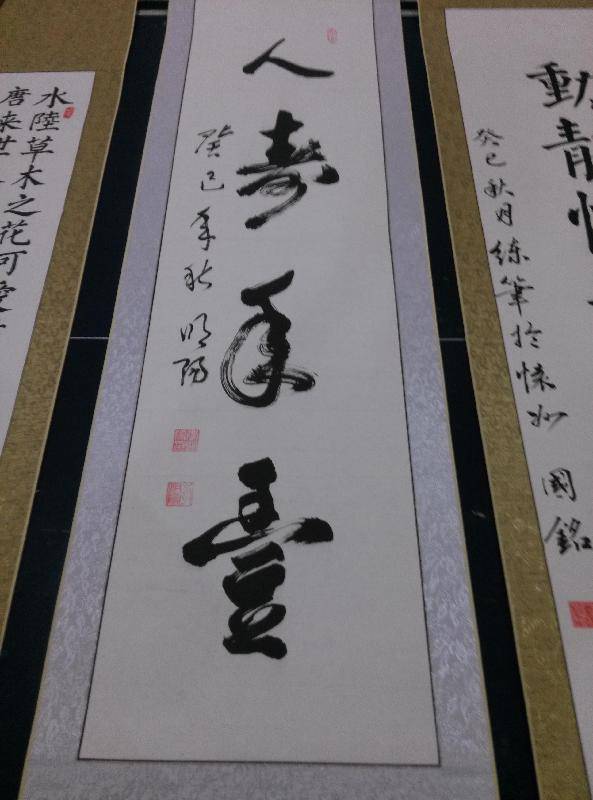 動青
癸巳秋月练筆於懷
國銘
人壽年豐
癸巳年秋 明陽
水陸草木之花可愛
唐来世